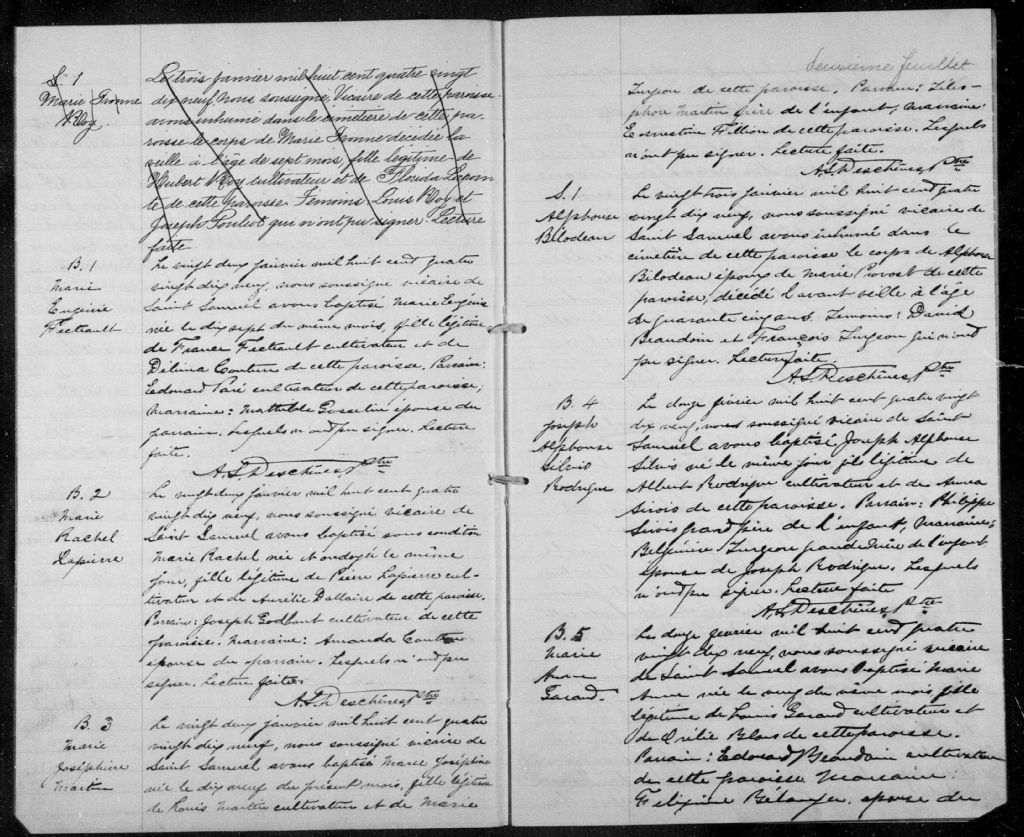 S. 1
Marie Ivonne
Roy.
Le trois janvier mil huit cent quatre vingt
dix neuf, nous soussigné, Vicaire de cette paroisse
avons inhumé dans le cimetière de cette pa-
roisse le corps de Marie Ivonne décédée la
veille à l'âge de sept mois, fille légitime de
Hubert Roy cultivateur et de Florida
de cette paroisse. Témoins: Louis Roy et
Joseph Pouliot qui n'ont pu signer. Lecture
faite
B. 1
Marie
Eugénie
Fecteault
Le vingt deux janvier mil huit cent quatre
vingt dix neuf, nous soussigné vicaire de
Saint Samuel avons baptisé Marie Eugénie
née le dix sept du même mois, fille légitime
de France Fecteault cultivateur et de
Délina Couture de cette paroisse. Parrain:
Edouard Paré cultivateur de cette paroisse,
marraine: Mathilde Gosselin épouse du
parrain. Lesquels n'ont pu signer. Lecture
faite.
A. S. Deschênes Ptre
B. 2
Marie
Rachel
Lapierre
Le vingt deux janvier mil huit cent quatre
vingt dix neuf, nous soussigné vicaire de
Saint Samuel avons baptisé sous condition
Marie Rachel née et ondoyée le même
jour, fille légitime de Pierre Lapierre cul-
tivateur et de Aurélie Dallaire de cette paroisse.
Parrain: Joseph Godbout cultivateur de cette
paroisse. Marraine: Amanda
épouse du parrain. Lesquels n'ont pu
signer. Lecture faite.
A. S. Deschênes Ptre
B. 3
Marie
Joséphine
Martin
Le vingt deux janvier mil huit cent quatre
vingt dix neuf, nous soussigné vicaire de
Saint Samuel avons baptisé Marie Joséphine
née le dix neuf du présent mois, fille légitime
de Louis Martin cultivateur et de Marie
deuxième feuillet
Turgeon de cette paroisse. Parrain: Téles-
phore Martin frère de l'enfant, marraine:
Ernestine Fillion de cette paroisse. Lesquels
n'ont pu signer. Lecture faite.
A. S. Deschênes Ptre
S. 1
Alphonse
Bilodeau
Le vingt trois janvier mil huit cent quatre
vingt dix neuf, nous soussigné vicaire de
Saint Samuel avons inhumé dans le
cimetière de cette paroisse le corps de Alphonse
Bilodeau époux de Marie Provost de cette
paroisse, décédé l'avant veille à l'âge
de quarante cinq ans. Témoins: David
Beaudoin et François Turgeon qui n'ont
pu signer. Lecture faite.
A. S. Deschênes Ptre
B. 4
Joseph
Alphonse
Silvio
Rodrigue
Le douze février mil huit cent quatre vingt
dix neuf, nous soussigné vicaire de Saint
Samuel avons baptisé Joseph Alphonse
Silvio né le même jour fils légitime de
Albert Rodrigue cultivateur et de Anna
Sirois de cette paroisse. Parrain: Philippe
Sirois grand père de l'enfant, marraine:
Turgeon grande mère de l'enfant
épouse de Joseph Rodrigue. Lesquels
n'ont pu signer. Lecture faite
A. S. Deschênes Ptre
B. 5
Marie
Anna
Garand.
Le douze février mil huit cent quatre
vingt dix neuf, nous soussigné vicaire
de Saint Samuel avons baptisé Marie
Anna née le neuf du même mois fille
légitime de Louis Garand cultivateur et
de Orélie Blais de cette paroisse.
Parrain: Edouard Beaudoin cultivateur
de cette paroisse Marraine:
Bélanger, épouse du